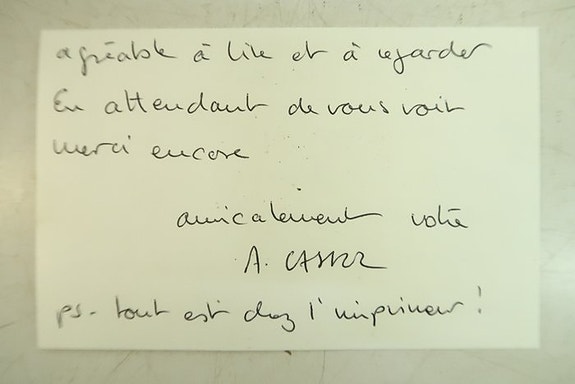 agréable à lire et à regarder
En attendant de vous voir
merci encore
amicalement votre
A.
ps- tout est chez l'imprimeur !